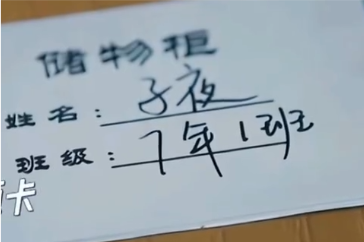 储物柜
姓名：子夜
班级：7年1班
卡